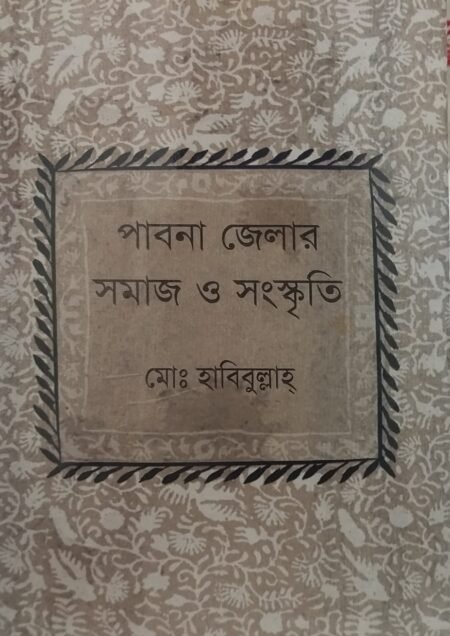 পাবনা জেলার
সমাজ ও সংস্কৃতি
মোঃ হাবিবুল্লাহ্